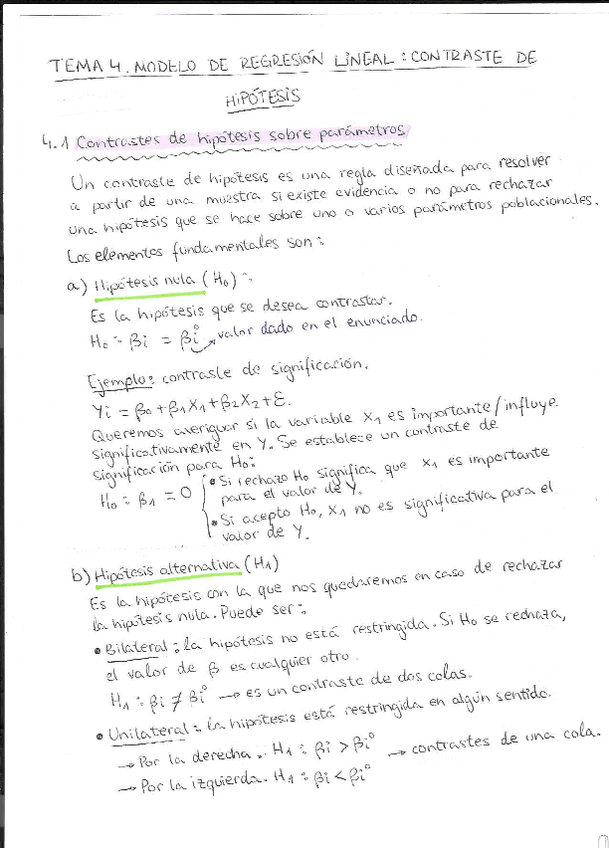 TEMA 4. MODELO DE REGRESIÓN LINEAL: CONTRASTE DE
HIPÓTESIS
4.1 Contrastes de hipótesis sobre parámetros
Un contraste de hipótesis es una regla diseñada para resolver
a partir de una muestra si existe evidencia o no para rechazar
una hipótesis que se hace sobre uno o varios parámetros poblacionales.
Los elementos fundamentales son:
a) Hipótesis nula (H₀):
Es la hipótesis que se desea contrastar.
H₀: βi = βi⁰ → valor dado en el enunciado.
Ejemplo: contraste de significación.
Yi = β₀+β₁X₁+β₂X₂+Ɛ.
Queremos averiguar si la variable X₁ es importante/influye
significativamente en Y. Se establece un contraste de
significación para H₀:
H₀: β₁ = 0
• Si rechazo H₀ significa que X₁ es importante
para el valor de Y.
• Si acepto H₀, X₁ no es significativa para el
valor de Y.
b) Hipótesis alternativa (H₁)
Es la hipótesis con la que nos quedaremos en caso de rechazar
la hipótesis nula. Puede ser:
• Bilateral: la hipótesis no está restringida. Si H₀ se rechaza,
el valor de β es cualquier otro.
H₁: βi ≠ βi⁰ → es un contraste de dos colas.
• Unilateral: la hipótesis está restringida en algún sentido.
→ Por la derecha. H₁: βi > βi⁰ → contrastes de una cola.
→ Por la izquierda. H₁: βi < βi⁰